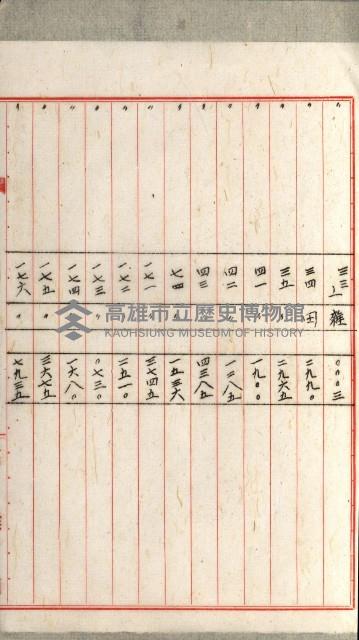 〃 三三ノ一 雑 〇〇〇三
〃 三四 田 二九九〇
〃 三五 〃 二九六五
〃 四一 〃 一九〇〇
〃 四二 〃 一〇八五
〃 四三 〃 四三八五
〃 七四 〃 一五三六
〃 一七一 〃 三七四五
〃 一七二 〃 二五一〇
〃 一七三 〃 〇七三〇
〃 一七四 〃 一六八〇
〃 一七五 〃 三六七五
〃 一七六 〃 七九三五
高雄市立歷史博物館
KAOHSIUNG MUSEUM OF HISTORY